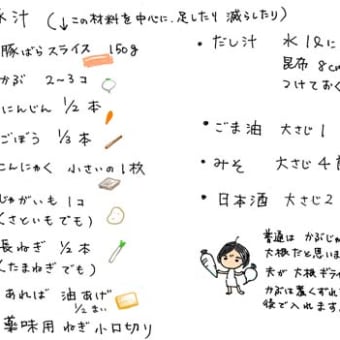 汁 (↓この材料を中心に、足したり 減らしたり)
豚ばらスライス 150g
かぶ 2〜3コ
にんじん 1/2本
ごぼう 1/3本
こんにゃく 小さいの1枚
じゃがいも 1コ
(さといもでも)
長ねぎ 1/2本
(たまねぎでも)
あれば 油あげ
1/2まい
薬味用 ねぎ 小口切り
・だし汁 水1ℓに
昆布 8cm
つけておく
・ごま油 大さじ1
・みそ 大さじ4
・日本酒 大さじ2
普通は かぶじゃ
大根だと思いま
夫が 大根ギライ
かぶは 煮くずれ
後で入れます